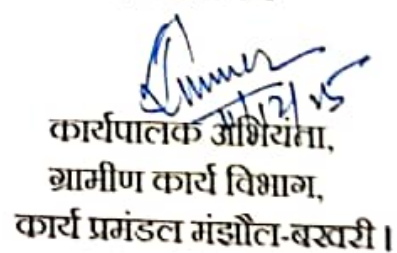 11/12/25
कार्यपालक अभियंता,
ग्रामीण कार्य विभाग,
कार्य प्रमंडल मंझौल-बखरी।